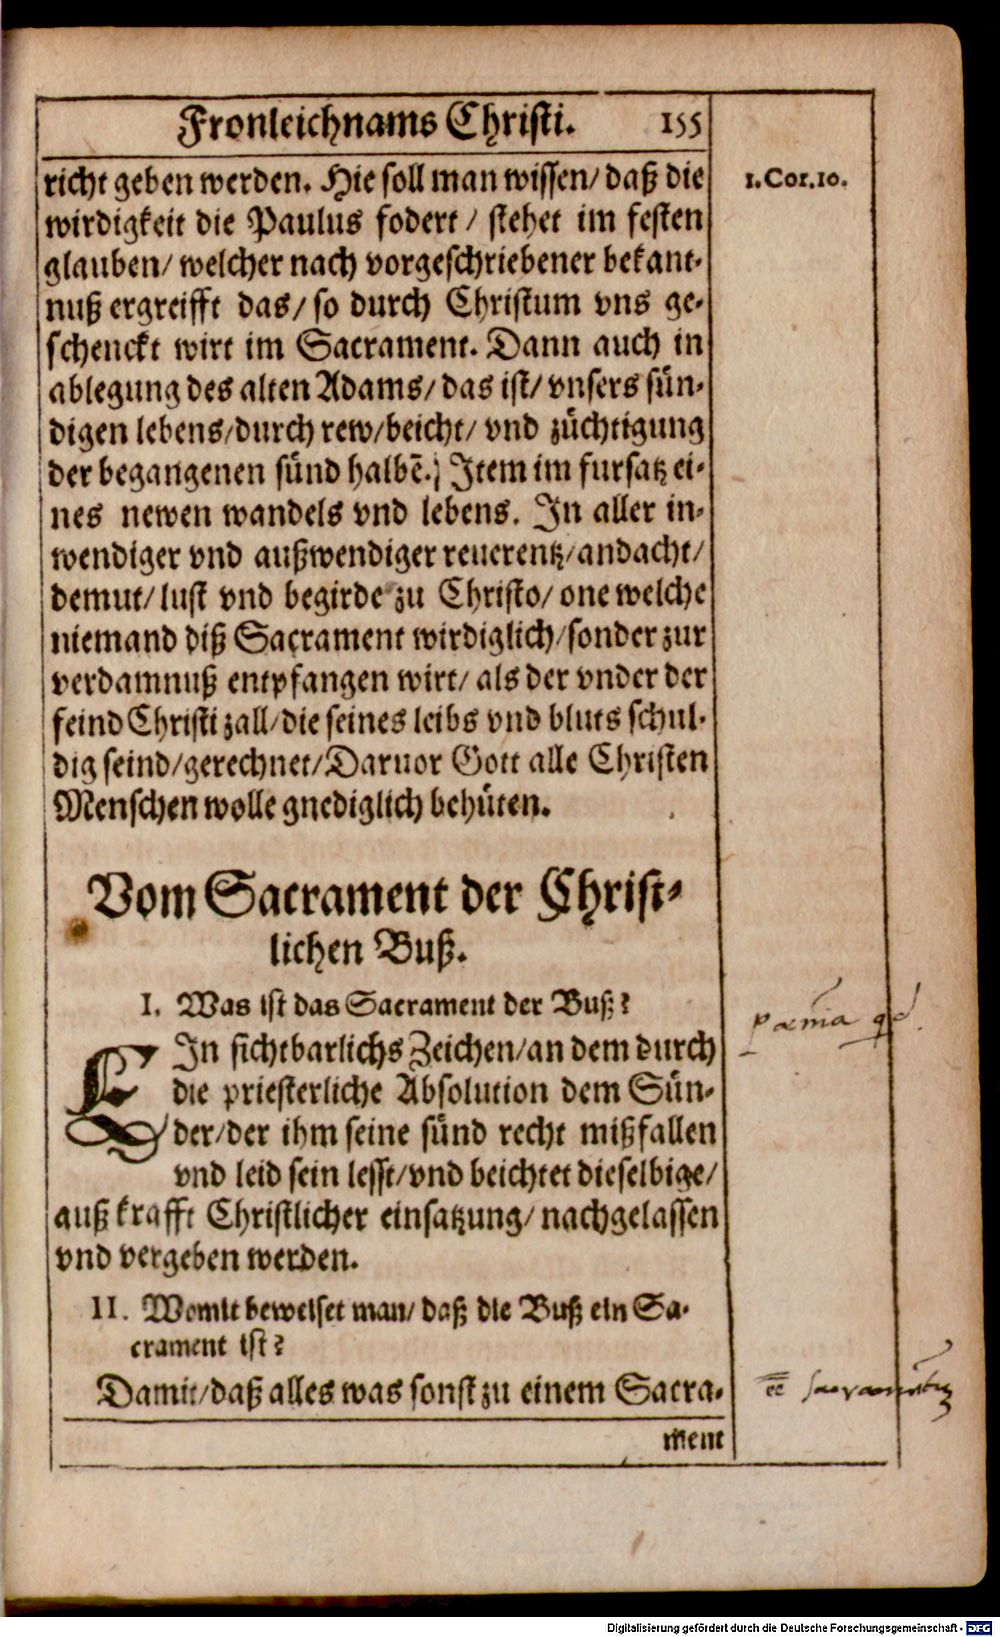 Fronleichnams Christi. 155
richt geben werden. Hie soll man wissen/ daß die
1.Cor.10.
wirdigkeit die Paulus fodert / stehet im festen
glauben/ welcher nach vorgeschriebener bekant-
nuß ergreifft das/ so durch Christum vns ge-
schenckt wirt im Sacrament. Dann auch in
ablegung des alten Adams/ das ist/ vnsers sün-
digen lebens/durch rew/beicht/ vnd züchtigung
der begangenen sünd halbē.) Item im fursatz ei-
nes newen wandels vnd lebens. In aller in-
wendiger vnd außwendiger reuerentz/andacht/
demut/ lust vnd begirde zu Christo/ one welche
niemand diß Sacrament wirdiglich/sonder zur
verdamnuß entpfangen wirt/ als der vnder der
feind Christi zall/die seines leibs vnd bluts schul-
dig seind/gerechnet/Daruor Gott alle Christen
Menschen wolle gnediglich behüten.
Vom Sacrament der Christ-
lichen Buß.
I. Was ist das Sacrament der Buß?
EIn sichtbarlichs Zeichen/an dem durch
die priesterliche Absolution dem Sün-
der/der ihm seine sünd recht mißfallen
vnd leid sein lesst/vnd beichtet dieselbige/
auß krafft Christlicher einsatzung/ nachgelassen
vnd vergeben werden.
II. Womit beweiset man/ daß die Buß ein Sa-
crament ist?
Damit/daß alles was sonst zu einem Sacra-
ment
Digitalisierung gefördert durch die Deutsche Forschungsgemeinschaft - DFG